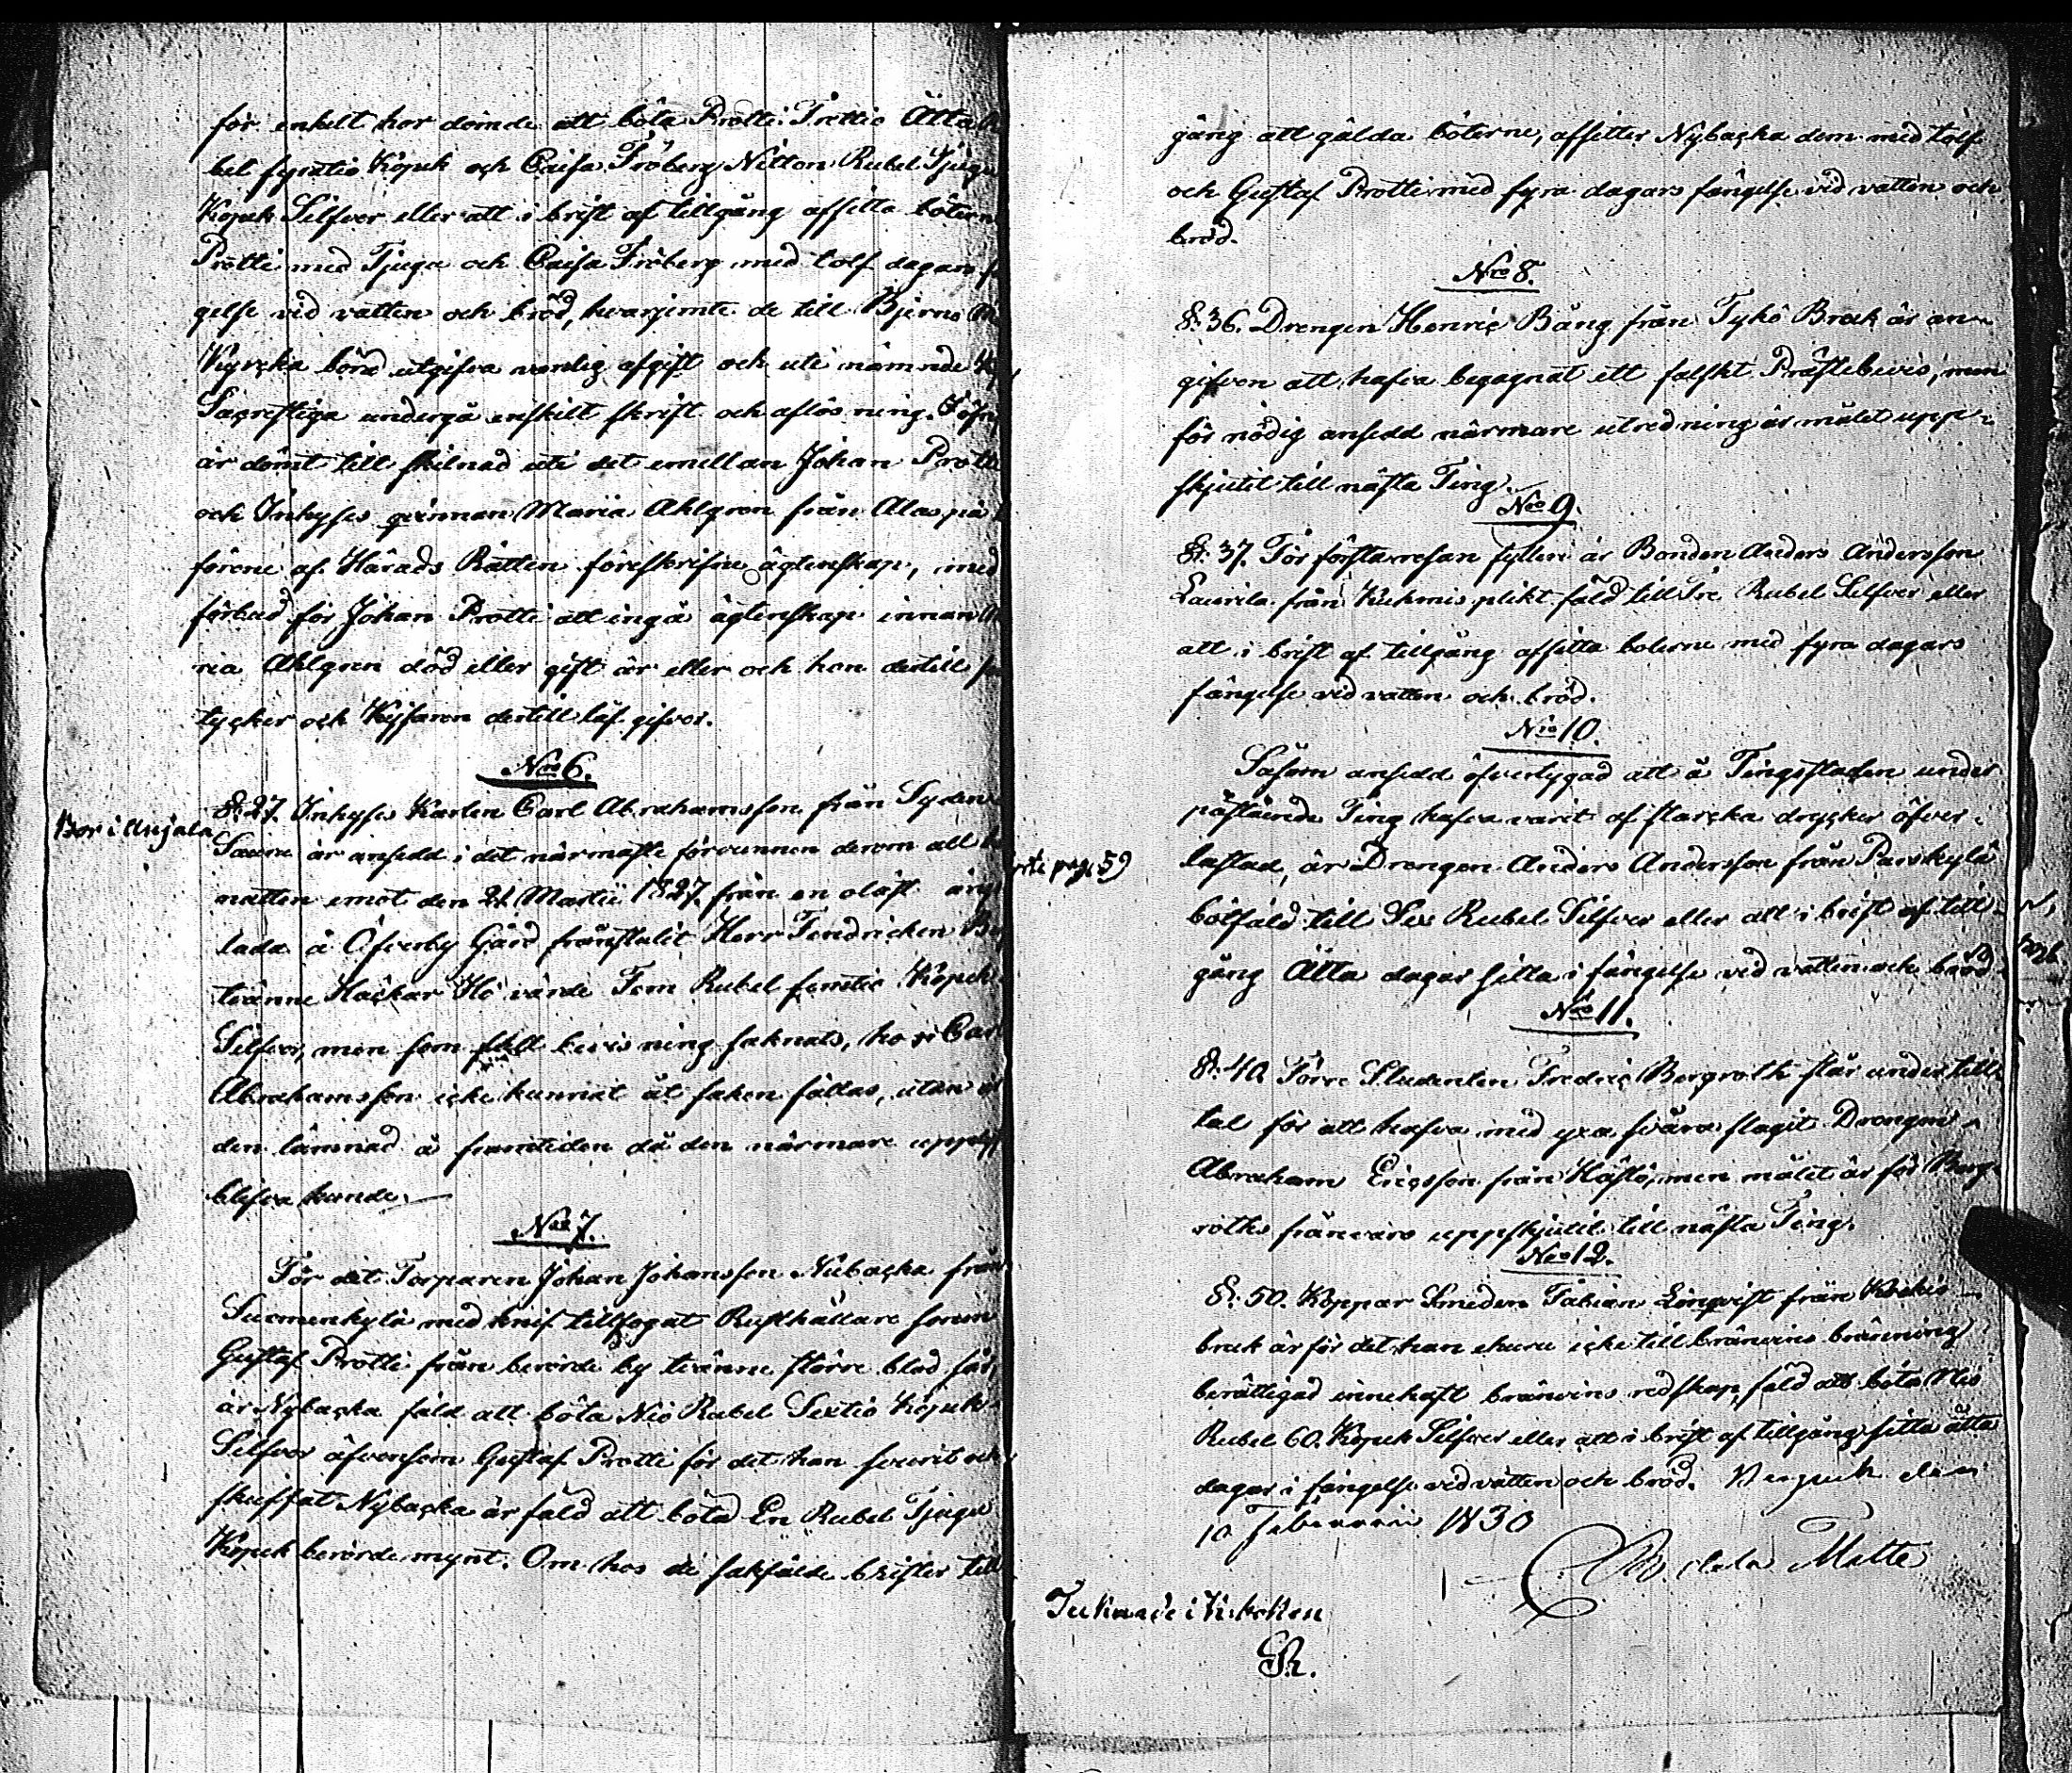 för enkelt hor dömde att böta Protti Trettio Åtta
bel fyratio Kopek och Caisa Fröberg Nitton Rubel Tjugu
Kopek Silfver eller att i brist af tillgång afsitta böterne
Protti med Tjugu och Caisa Fröberg med tolf dagars
gelse vid vatten och bröd, hvarjemte de till Bjerno
Kyrcka böra utgifva vanlig afgift och uti nämnde
Sacrestiga undergå enskilt skrift och aflösning.
är dömt till skilnad uti det emellan Johan Protti
och Inhyses qvinnan Maria Ahlgren från Alaspä
förene af Härads Rätten föreskrifne ägtenskap, med
förbud för Johan Protti att ingå ägtenskap innan
ria Ahlgren död eller gift är eller och hon dertill
tycker och Kejsaren dertill lof gifver.
Nro 6.
§. 27. Inhyses Karlen Carl Abrahamsson från Syden
Bor i Anjala
Saura är ansedd i det närmaste förvunnen derom att
natten emot den 21 Martii 1827 från en oläst äng
lada å Öfverby Gård frånstulit Herr Fendricken
tvänne Häckar Hö värde Fem Rubel femtio Kopek
Silfver, men som full bevisning saknats, har Carl
Abrahamsson icke kunnat åt saken fällas, utan
den lämnad å framtiden då den närmare upply
blifva kunde.
Nro 7.
För det Torparen Johan Johansson Nübacka från
Suomenkylä med knif tillfogat Rusthållare sonen
Gustaf Protti från berörde by tvänne större blodsår,
är Nybacka fäld att böta Nio Rubel Sextio Kopek
Silfver äfvensom Gustaf Protti för det han svurit och
skuffat Nybacka är fäld att böta En Rubel Tjugu
Kopek berörde mynt. Om hos de sakfälde brister till
gång att gälda böterne, afsitter Nybacka dem med tolf
och Gustaf Protti med fyra dagars fängelse vid vatten och
bröd.
Nro 8.
§. 36. Drengen Henric Bång från Tykö Bruk är an
gifven att hafva begagnat ett falskt Prästebevis, men
för nödig ansedd närmare utredning är målet upp
skjutit till nästa Ting.
Nro 9.
§. 37. För första resan fylleri är Bonden Anders Andersson
Laurila från Kuhmis plikt fäld till Tre Rubel Silfver eller
att i brist af tillgång afsitta böterne med fyra dagars
fängelse vid vatten och bröd.
Nro 10.
Såsom ansedd öfvertygad att å Tingsstaden under
påstående Ting hafva varit af starcka drycker öfver
lastad, är Drengen Anders Andersson från Parskylä
page 59
botfäld till Sex Rubel Silfver eller att i brist af till
gång Åtta dagar sitta i fängelse vid vatten och bröd
Nro 11.
§. 40 Förre Studenten Fredric Bergroth står under till
tal för att hafva med yxa svåra slagit Drengen
Abraham Ericsson från Hästö, men målet är för Berg
roths frånvaro uppskjutit till nästa Ting.
Nro 12.
§. 50. Koppar Smeden Fabian Lönqvist från Koskis
bruk är för det han ehuru icke till bränvins bränning
berättigad innehaft bränvins redskap, fäld att böta Nio
Rubel 60. Kopek Silfver eller att i brist af tillgång sitta åtta
dagar i fängelse vid vatten och bröd. den
10 Februarii 1830